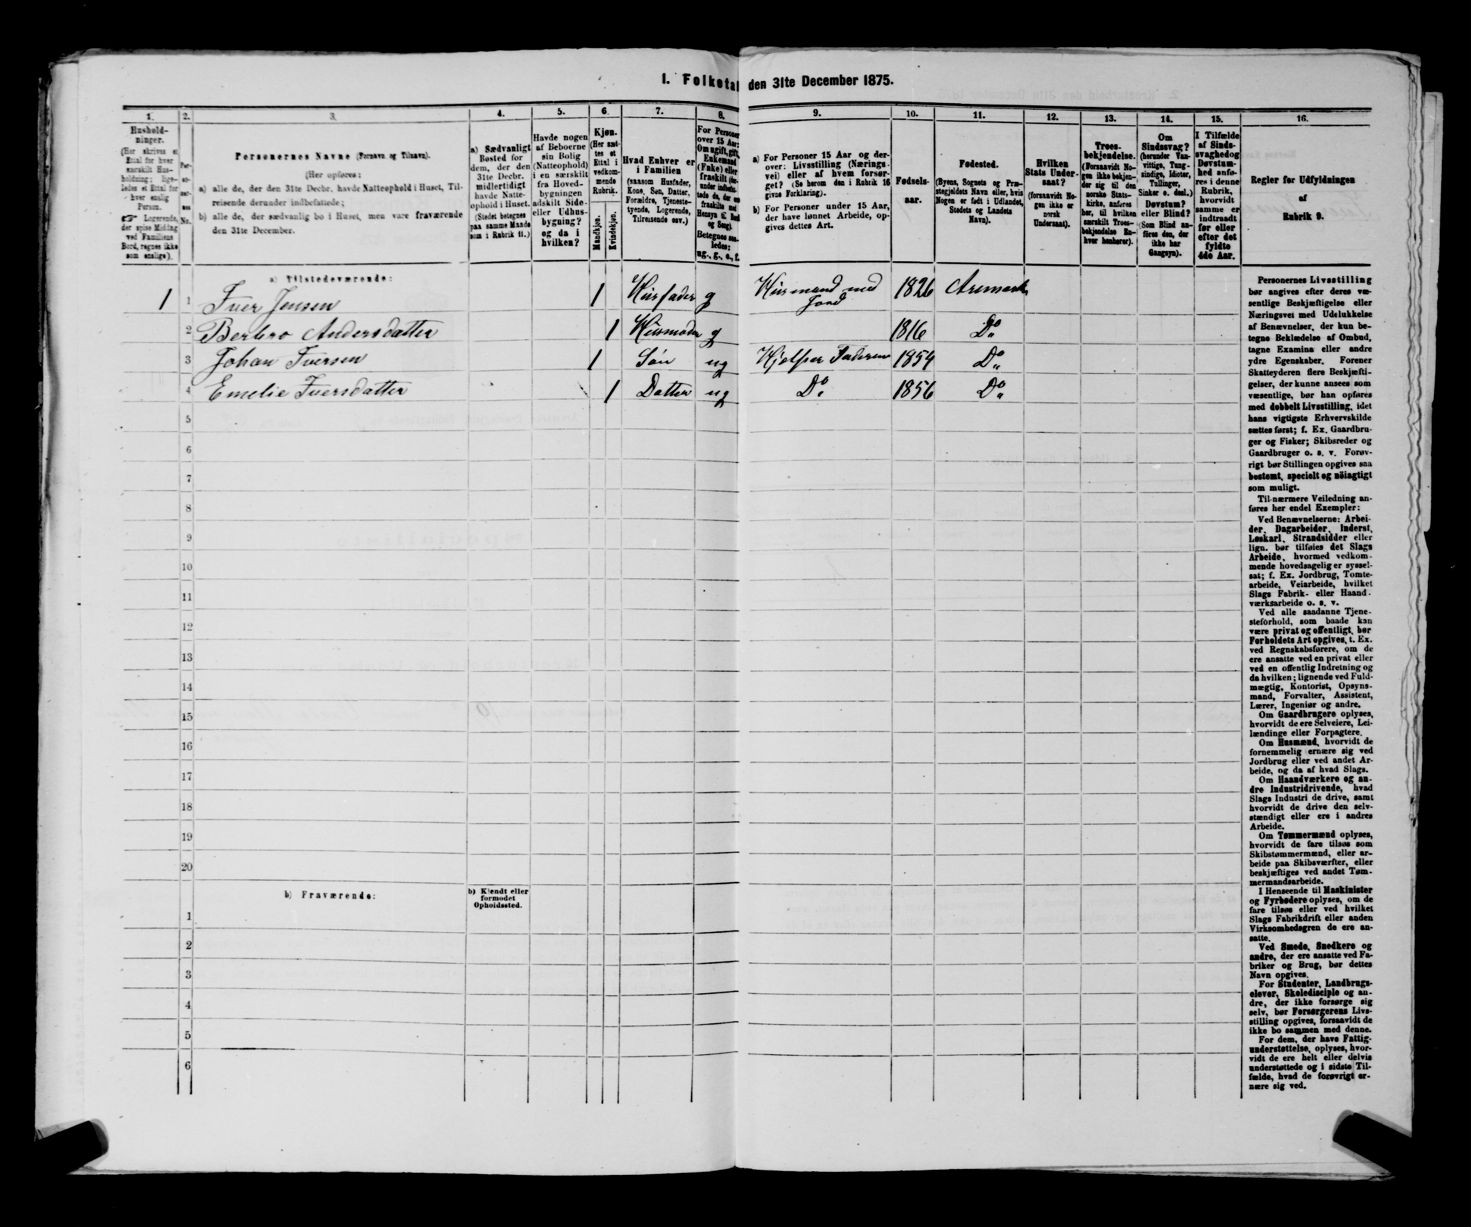 I. Folketal den 31te December 1875.
1. 2. 3. 4. 5. 6. 7. 8. 9. 10. 11. 12. 13. 14. 15. 16.
Hushold-
ninger.
(Her skrives et
Ettal for hver
særskilt Hus-
holdning; lige-
ledes et Ettal for
hver enslig
Person.
☞ Logerende,
der spise Middag
ved Familiens
Bord, regnes ikke
som enslige).
Per-
No.
Personernes Navne (Fornavn og Tilnavn).
(Her opføres:
a) alle de, der den 31te Decbr. havde Natteophold i Huset, Til-
reisende derunder indbefattede;
b) alle de, der sædvanlig bo i Huset, men vare fraværende
den 31te December.
a) Sædvanligt
Bosted for
dem, der den
31te Decbr.
midlertidigt
havde Natte-
ophold i Huset.
(Stedet betegnes
paa samme Maade
som i Rubrik 11.)
Havde nogen
af Beboerne
sin Bolig
(Natteophold)
i en særskilt
fra Hoved-
bygningen
adskilt Side-
eller Udhus-
bygning?
og da i
hvilken?
Kjøn.
(Her sæt-
tes et
Ettal i
vedkom-
mende
Rubrik.
Mandkjøn.
Kvindekjøn.
Hvad Enhver er
i Familien
(saasom Husfader,
Kone, Søn, Datter,
Forældre, Tjeneste-
tyende, Logerende,
Tilreisende osv.)
For Personer
over 15 Aar:
Om ugift, gift,
Enkemand
(Enke) eller
fraskilt
Betegnes saa-
ledes:
ug., g., e., f.
a) For Personer 15 Aar og der-
over: Livsstilling (Nærings-
vei) eller af hvem forsør-
get? (Se herom den i Rubrik 16
givne Forklaring).
b) For Personer under 15 Aar,
der have lønnet Arbeide, op-
gives dettes Art.
Fødsels-
aar.
Fødested.
(Byens, Sognets og Præ-
stegjeldets Navn eller, hvis
Nogen er født i Udlandet,
Stedets og Landets
Navn).
Hvilken
Stats Under-
saat?
(forsaavidt No-
gen ikke er
norsk
Undersaat).
Troes-
bekjendelse.
(Forsaavidt No-
gen ikke bekjen-
der sig til den
norske Stats-
kirke, anføres
her, til hvilken
særskilt Troes-
bekjendelse En-
hver henhører).
Om
Sindssvag?
(herunder Van-
vittige, Tung-
sindige, Idioter,
Tullinger,
Sinker o. desl.)
Døvstum?
eller Blind?
(Som Blind an-
føres den, der
ikke har
Gangsyn).
I Tilfælde
af Sinds-
svaghed og
Døvstum-
hed anfø-
res i denne
Rubrik,
hvorvidt
samme er
indtraadt
før eller
efter det
fyldte
4de Aar.
Regler for Udfyldningen
af
Rubrik 9.
a) Tilstedeværende:
1 1 Iver Jensen 1 Husfader g Husmand med Jord 1826 Aremark
2 Berbro Andersdatter 1 Husmoder g 1816 Do
3 Johan Iversen 1 Søn ug Hjelper Faderen 1854 Do
4 Emelie Iversdatter 1 Datter ug Do 1856 Do
5
6
7
8
9
10
11
12
13
14
15
16
17
18
19
20
b) Fraværende:
b) Kjendt eller
formodet
Opholdssted.
1
2
3
4
5
6
Personernes Livsstilling
bør angives efter deres væ-
sentlige Beskjæftigelse eller
Næringsvei med Udelukkelse
af Benævnelser, der kun be-
tegne Beklædelse af Ombud,
tagne Examina eller andre
ydre Egenskaber. Forener
Skatteyderen flere Beskjæfti-
gelser, der kunne ansees som
væsentlige, bør han opføres
med dobbelt Livsstilling, idet
hans vigtigste Erhvervskilde
sættes først; f. Ex. Gaardbru-
ger og Fisker; Skibsreder og
Gaardbruger o. s. v. Forøv-
rigt bør Stillingen opgives saa
bestemt, specielt og nøiagtigt
som muligt.
Til nærmere Veiledning an-
føres her endel Exempler:
Ved Benævnelserne: Arbei-
der, Dagarbeider, Inderst,
Løskarl, Strandsidder eller
lign. bør tilføies det Slags
Arbeide, hvormed vedkom-
mende hovedsagelig er syssel-
sat; f. Ex. Jordbrug, Tomte-
arbeide, Veiarbeide, hvilket
Slags Fabrik- eller Haand-
værksarbeide o. s. v.
Ved alle saadanne Tjene-
steforhold, som baade kan
være privat og offentligt, bør
Forholdets Art opgives, t. Ex.
ved Regnskabsførere, om de
ere ansatte ved en privat eller
ved en offentlig Indretning og
da hvilken; lignende ved Fuld-
mægtig, Kontorist, Opsyns-
mand, Forvalter, Assistent,
Lærer, Ingeniør og andre.
Om Gaardbrugere oplyses,
hvorvidt de ere Selveiere, Lei-
lændinge eller Forpagtere.
Om Husmænd, hvorvidt de
fornemmelig ernære sig ved
Jordbrug eller ved andet Ar-
beide, og da af hvad Slags.
Om Haandværkere og an-
dre Industridrivende, hvad
Slags Industri de drive, samt
hvorvidt de drive den selv-
stændigt eller ere i andres
Arbeide.
Om Tømmermænd oplyses,
hvorvidt de fare tilsøs som
Skibstømmermænd, eller ar-
beide paa Skibsværfter, eller
beskjæftiges ved andet Tøm-
mermandsarbeide.
I Henseende til Maskinister
og Fyrbødere oplyses, om de
fare tilsøs eller ved hvilket
Slags Fabrikdrift eller anden
Virksomhedsgren de ere an-
satte.
Ved Smede, Snedkere og
andre, der ere ansatte ved Fa-
briker og Brug, bør dettes
Navn opgives.
For Studenter, Landbrugs-
elever, Skoledisciple og an-
dre, der ikke forsørge sig
selv, bør Forsørgerens Livs-
stilling opgives, forsaavidt de
ikke bo sammen med denne.
For dem, der have Fattig-
understøttelse, oplyses, hvor-
vidt de ere helt eller delvis
understøttede og i sidste Til-
fælde, hvad de forøvrigt er-
nære sig ved.